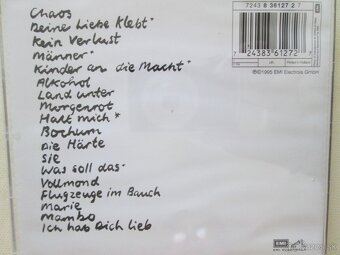 7243 8 36127 2 7
Chaos
Deine Liebe klebt*
Kein Verlust
Männer*
Kinder an die Macht*
Alkohol
Land unter
Morgenrot
Halt mich*
Bochum
Die Härte
Sie
Was soll das*
Vollmond
Flugzeuge im Bauch
Marie
Mambo
Ich hab Dich lieb
7 24383 61272 7
℗©1995 EMI Electrola GmbH
EMI